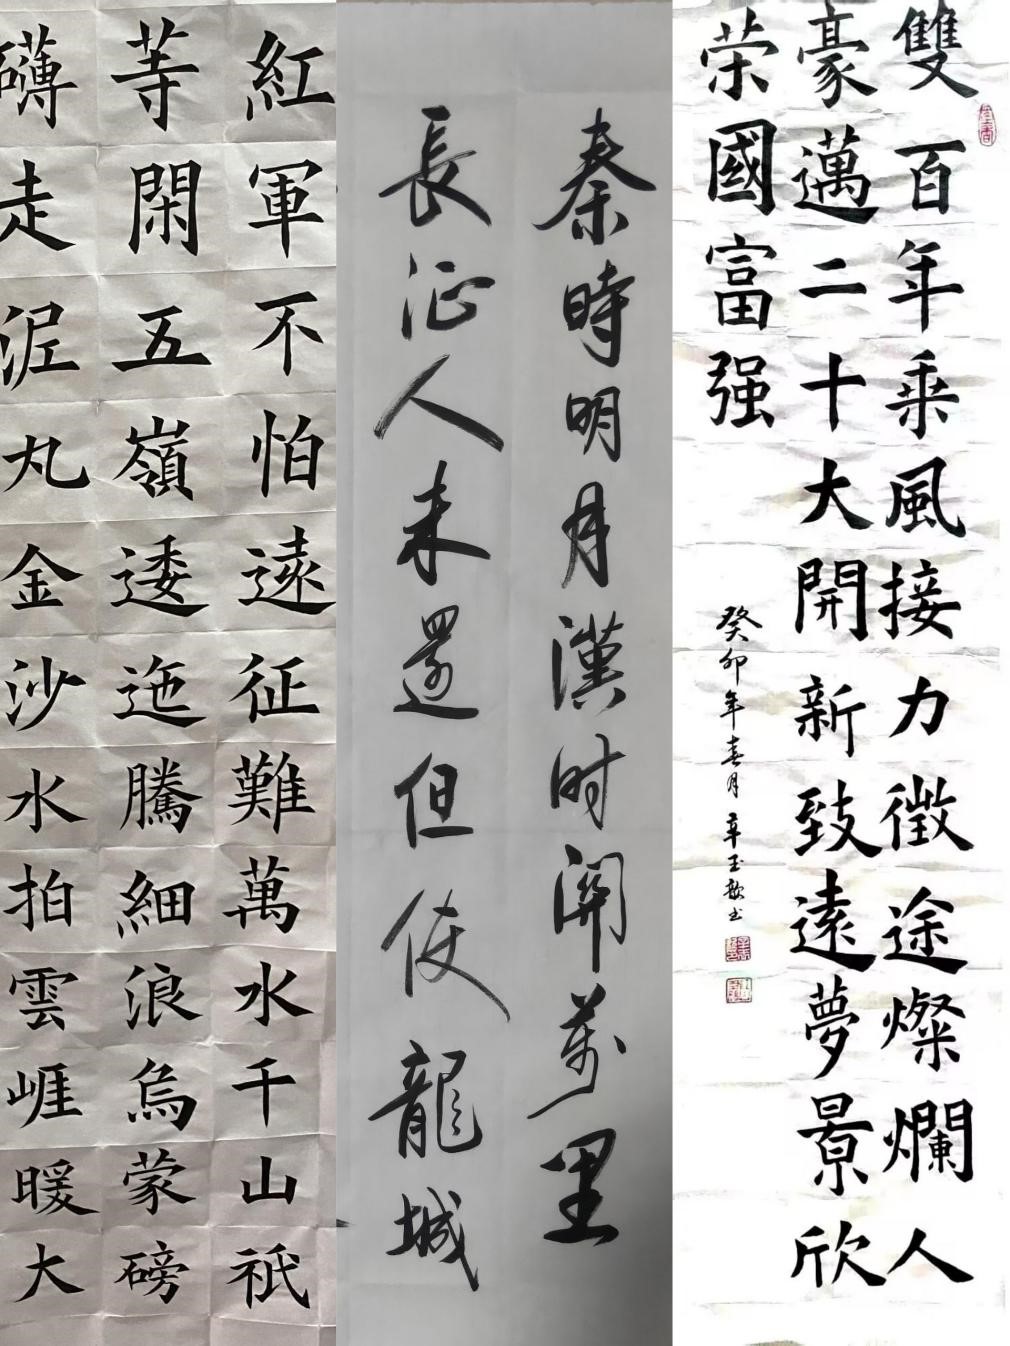 紅軍不怕遠征難萬水千山祇
等閑五嶺逶迤騰細浪烏蒙磅
礴走泥丸金沙水拍雲崕暖大
秦時明月漢时關萬里
長征人未還但使龍城
雙百年乘風接力徵途燦爛人
豪邁二十大開新致遠夢景欣
荣國富强
癸卯年春月辛玉歆书